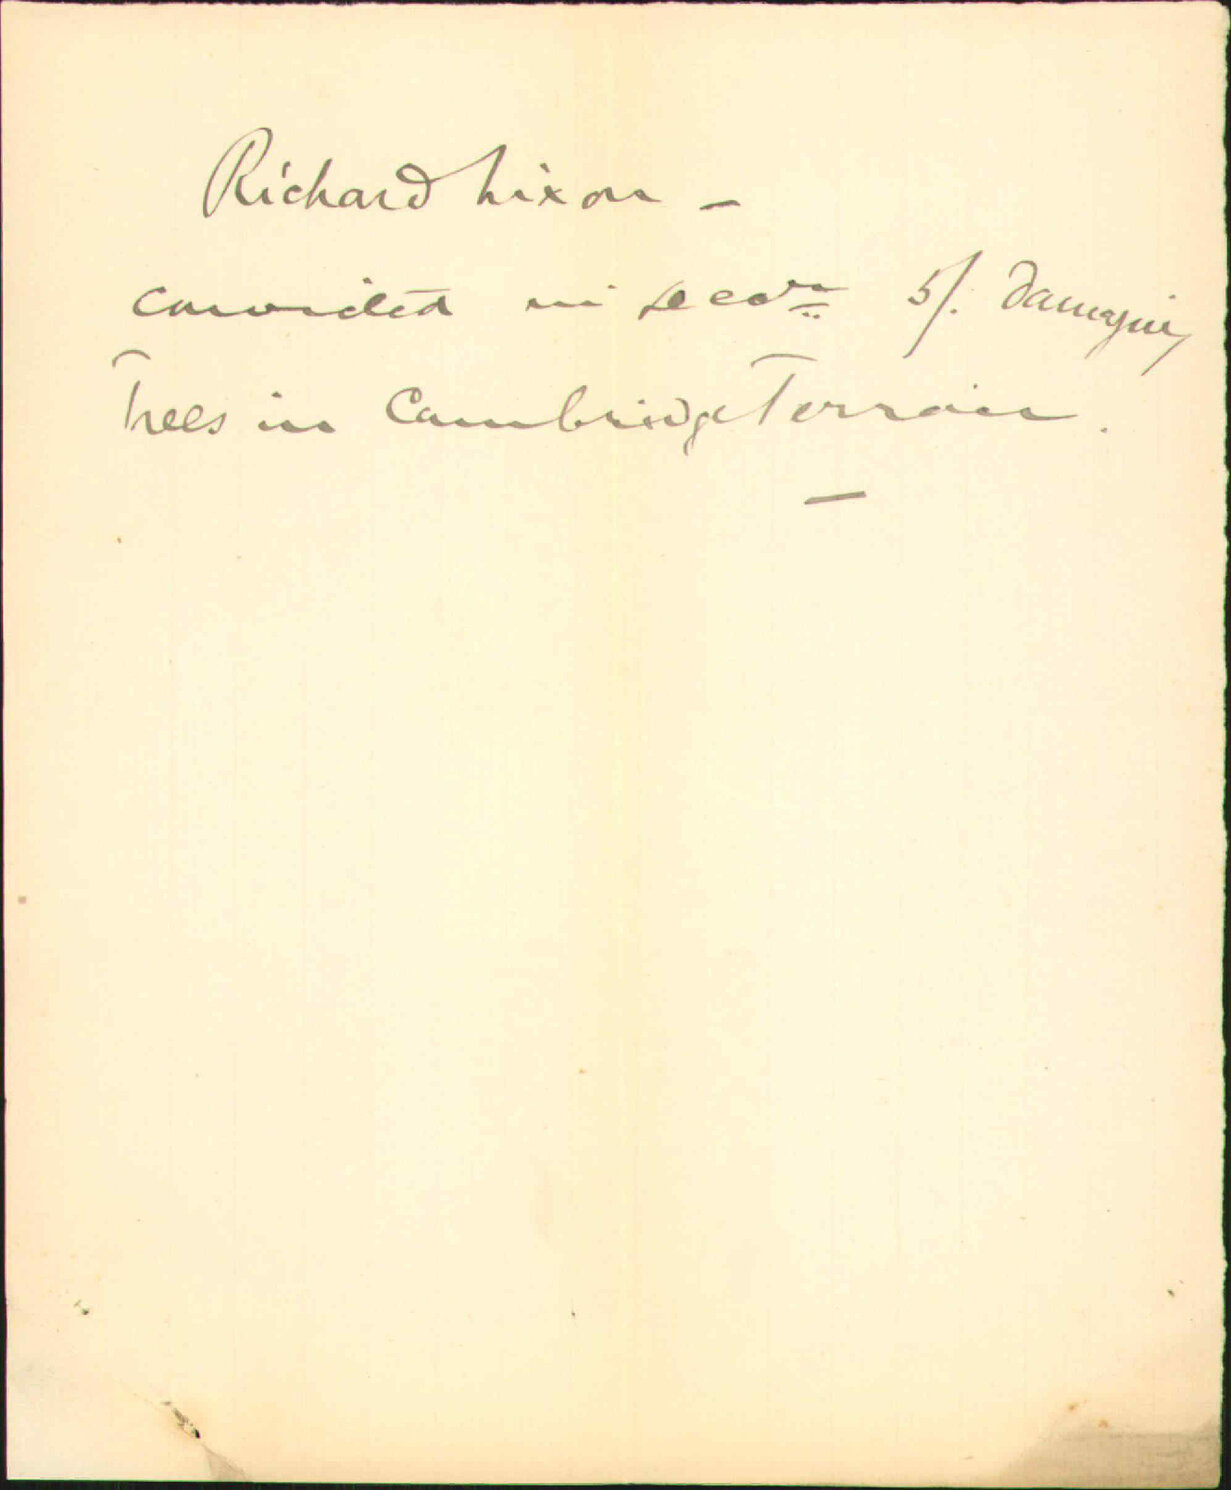 Richard Nixon -
convicted in 5/. Damaging
Trees in Cambridge Terrace.